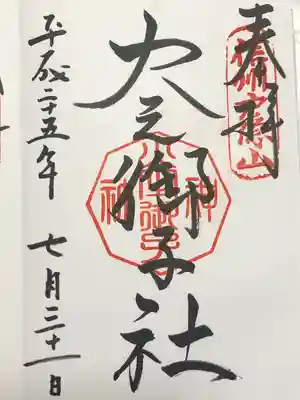 奉拝
火之御子社
平成二十五年 七月三十一日